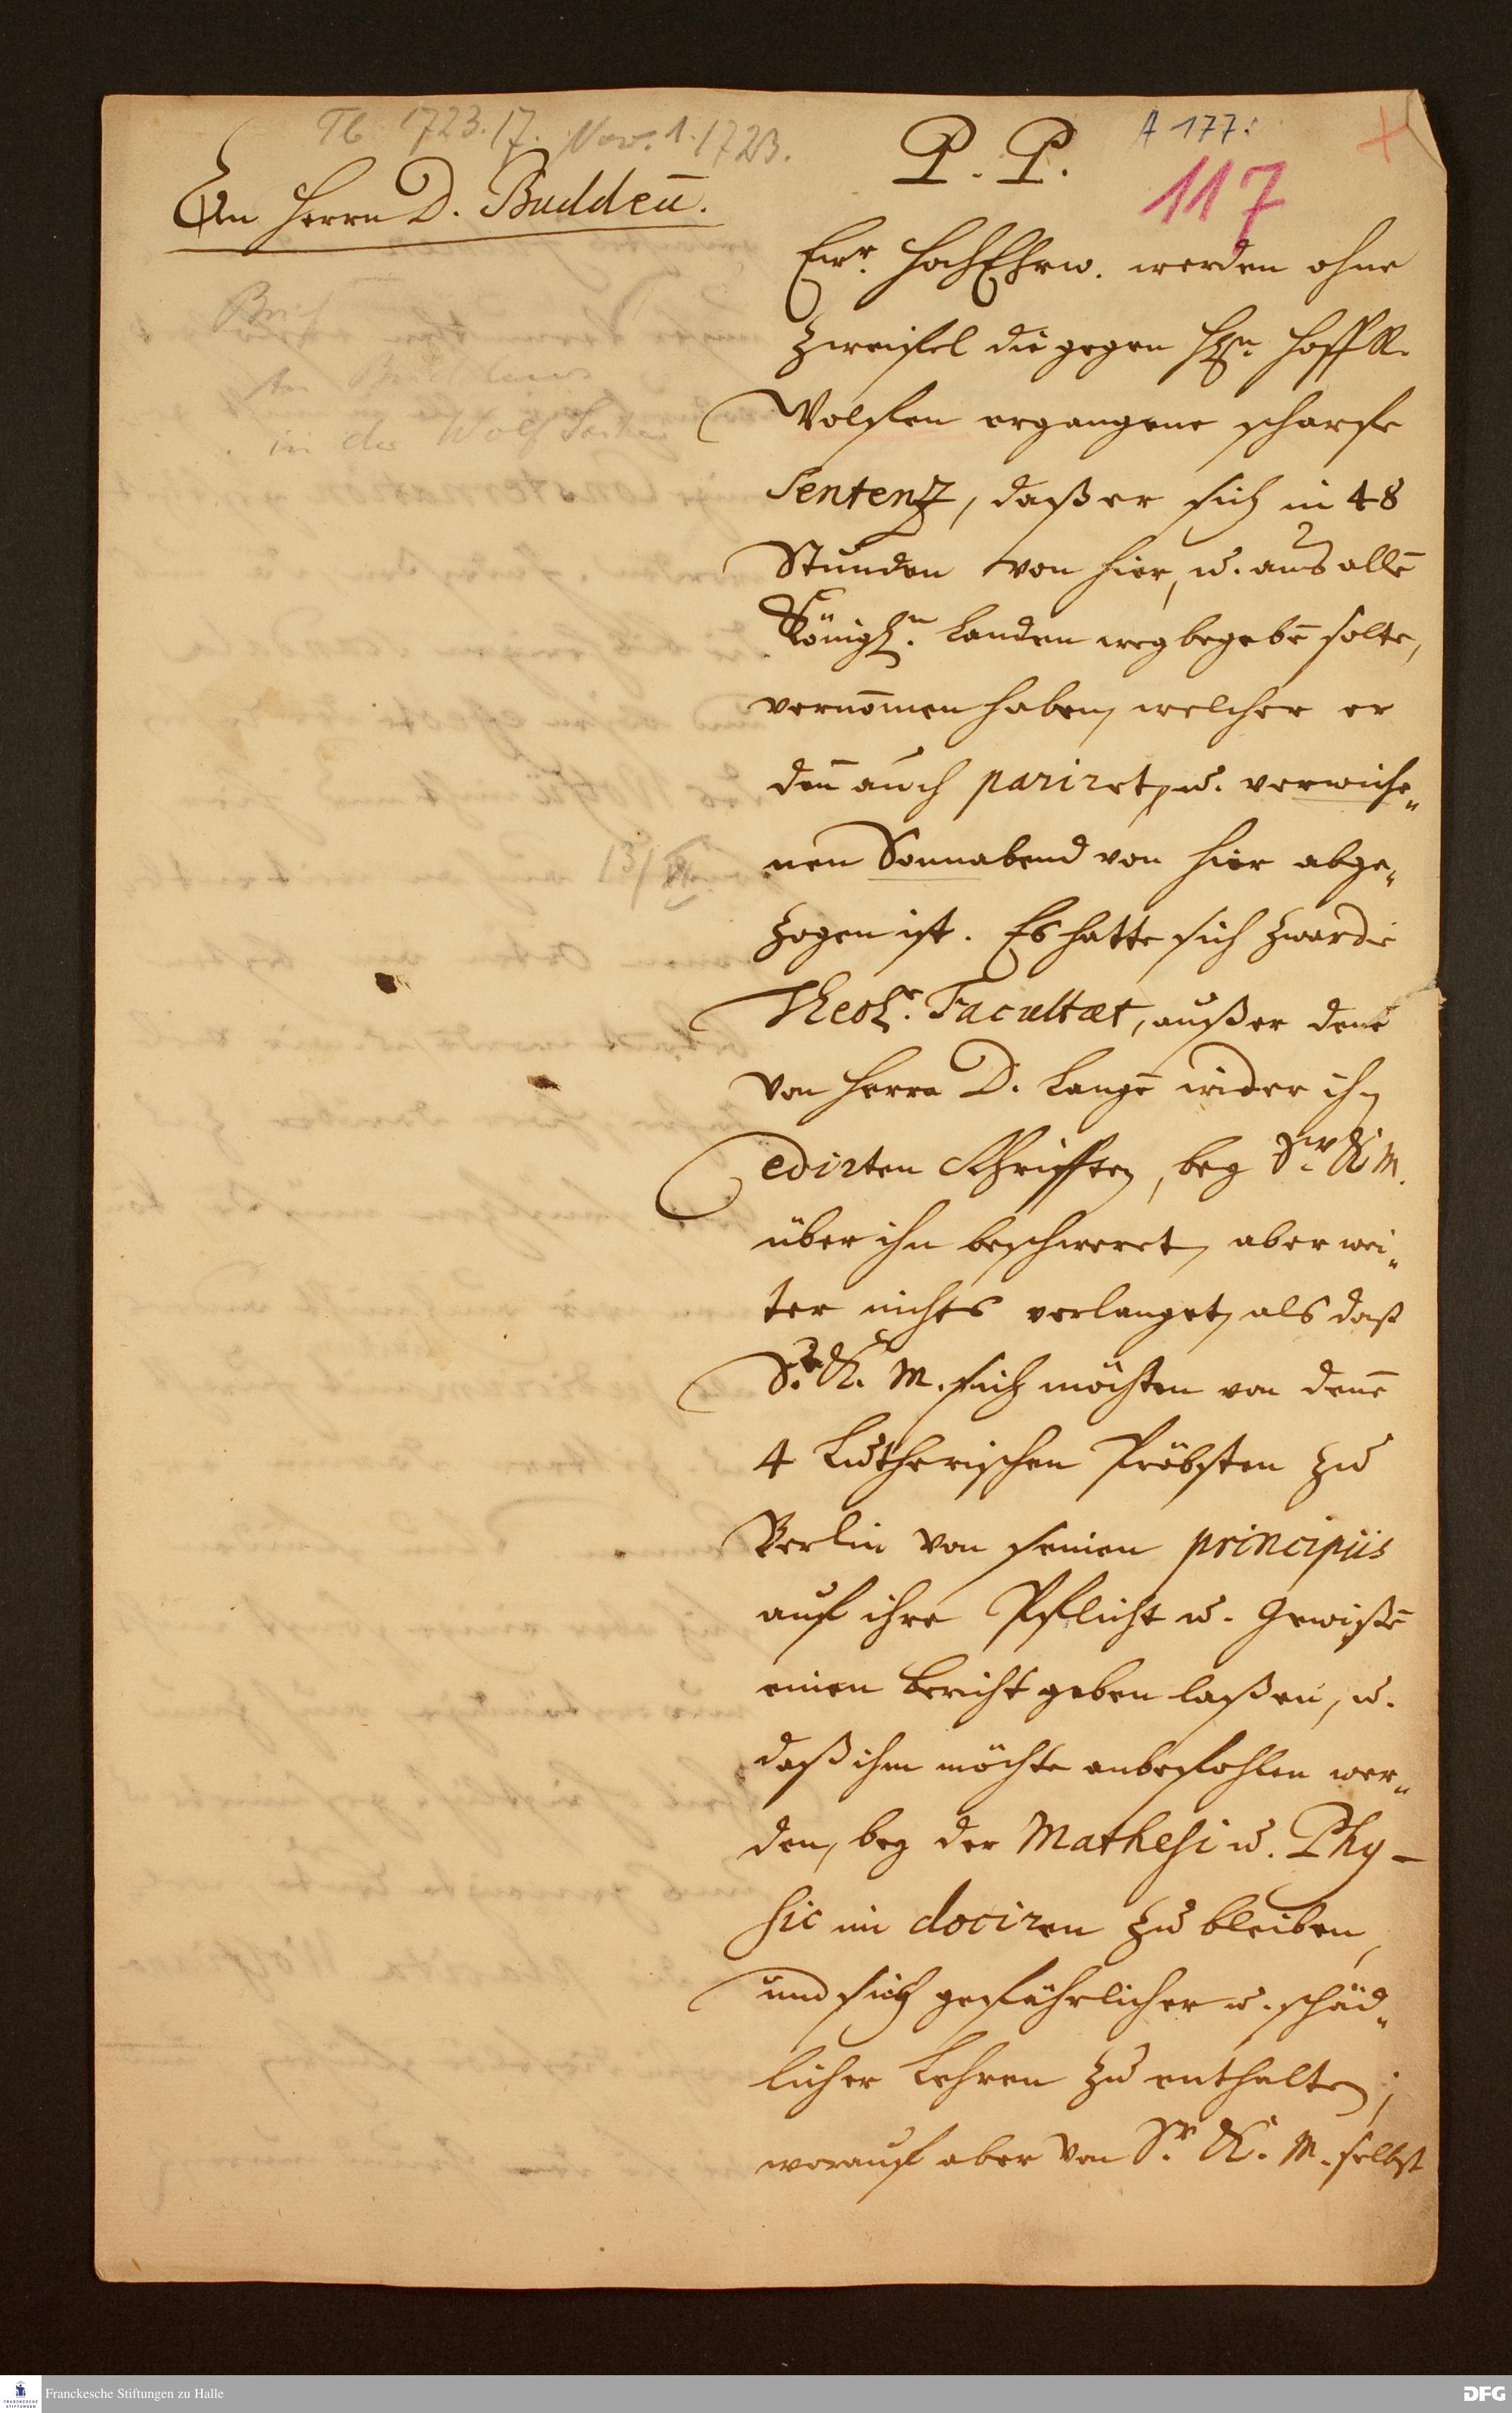 Tb. 1723. 17. Nov. 1. 1723.
A 177:
117
An Herrn D. Buddeū.
P. P.
Brief
An Buddeus
in der Wolf Sache
Ewr. HochEhrw. werden ohne
Zweifel die gegen Hℨn. Hoff R.
Wolffen ergangene scharfe
Sentenz, daß er sich in 48
Stunden von hier, u. aus allē
Königln. Landen weg begebē solte,
vernom̄en haben, welcher er
den̄ auch pariret, u. verwiche„
nen Sonnabend von hier abge„
13/XI
zogen ist. Es hatte sich zwar die
Theol. Facultæt, außer denē
von Herrn D. Langē wider ihn
edirten Schrifften, bey Sr. K M.
über ihn beschweret, aber wei„
ter nichts verlanget, als daß
Se. K. M. sich möchten von denē
4 Lutherischen Pröbsten zu
Berlin von seinen principiis
auf ihre Pflicht u. Gewißē
einen Bericht geben laßen, u.
daß ihm möchte anbefohlen wer„
den, bey der Mathesi u. Phy-
sic im dociren zu bleiben,
und sich gefährlicher u. schäd„
licher Lehren zu enthalten;
worauf aber von Sr. K. M. selbst
Franckesche Stiftungen zu Halle
DFG